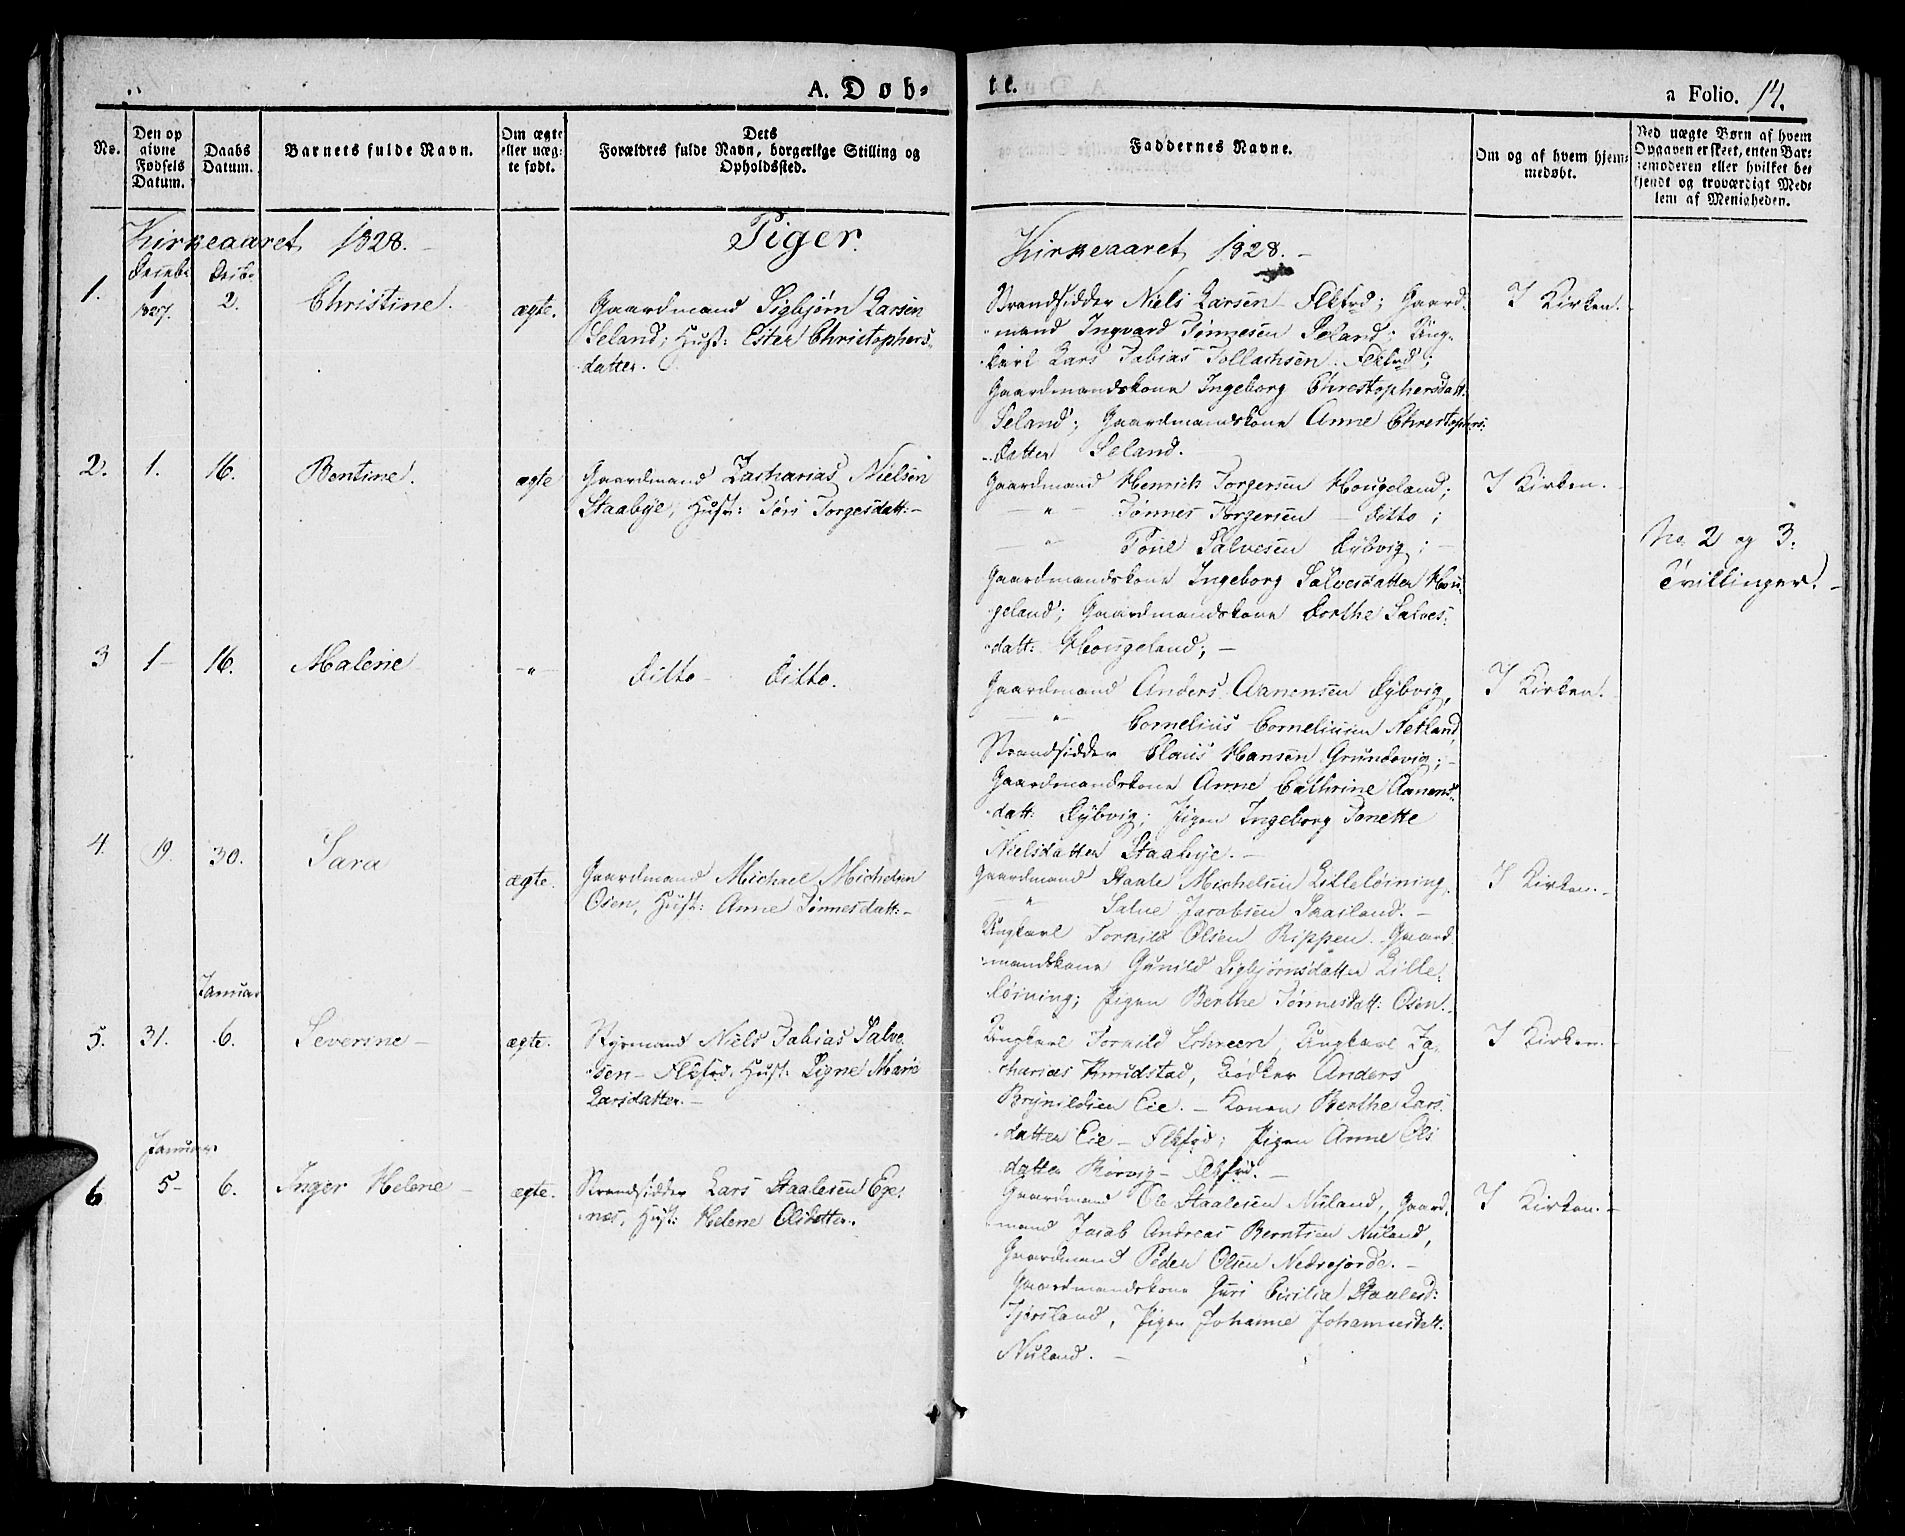 A. Døb-
te.
a Folio. 14.
No.
Den op
givne
Fødsels
Datum.
Daabs
Datum.
Barnets fulde Navn.
Om ægte
eller uæg-
te født.
Dets
Forældres fulde Navn, borgerlige Stilling og
Opholdssted.
Faddernes Navne.
Om og af hvem hjem-
medøbt.
Ved uægte Børn af hvem
Opgaven er skeet, enten Bar-
nemoderen eller hvilket be-
kjendt og troværdigt Med-
lem af Menigheden.
Kirkeaaret 1828. -
Piger.
Kirkeaaret 1828. -
1.
Decmbr
1
1827.
Decbr
2.
Christine.
ægte.
Gaardmand Sigbjørn Larsen
Seland; Hust: Ester Christophers-
datter.
Strandsidder Niels Larsen Flkfrd; Gaard-
mand Ingvard Tønnesen Seland; Ung-
karl Lars Tobias Tollachsen Flkfrd;
Gaardmandskone Ingeborg Christophersdatt:
Seland; Gaardmandskone Anne Christophers-
datter Seland.
I Kirken.
2.
1.
16.
Bentine.
ægte
Gaardmand Zacharias Nielsen
Staabye, Hust: Siri Torgesdatt: -
Gaardmand Henrich Torgersen Hougeland;
- " - Tønnes Torgersen - ditto;
- " Tønel Salvesen Dybvig; -
Gaardmandskone Ingeborg Salvesdatter Hou-
geland; Gaardmandskone Dorthe Salves-
datt: Hougeland; -
I Kirken.
No. 2 og 3.
Tvillinger. -
3
1 -
16.
Malene
- " -
Ditto - Ditto.
Gaardmand Anders Aanensen Dybvig,
- " - Cornelius Corneliusen Netland,
Strandsidder Claus Hansen Grundevig; -
Gaardmandskone Anne Cathrine Aanens-
datt: Dybvig; Pigen Ingeborg Tonette
Nielsdatter Staabye. -
I Kirken.
4.
19.
30.
Sara
ægte.
Gaardmand Michael Michelsen
Osen, Hust: Anne Tønnesdatt: -
Gaardmand Staale Michelsen Lilleløining,
- " - Salve Jacobsen Skailand. -
Ungkarl Torkild Olsen Rippen. Gaard-
mandskone Gunild Sigbjørnsdatter Lille-
løining; Pigen Berthe Tønnesdatt: Osen. -
I Kirken. -
5.
31.
Januar
6.
Severine -
ægte.
Styrmand Niels Tobias Salve-
sen - Flkfrd. Hust: Signe Marie
Larsdatter. -
Ungkarl Torkild Schreen, Ungkarl Za-
charias Knudstad, Bødker Anders
Brynildsen Eie. - Konen Berthe Lars-
datter Eie - Flkfrd; Pigen Anne Ols-
datter Rørvig - Flkfrd. -
I Kirken. -
6
Januar
5 -
6.
Inger Helene -
ægte.
Strandsidder Lars Staalesen Ege-
næs, Hust: Helene Olsdatter.
Gaardmand Ole Staalesen Nuland, Gaard-
mand Jacob Andreas Berntsen Nuland,
Gaardmand Peder Olsen Nedrejorde. -
Gaardmandskone Guri Cicilia Staalesd:
Tjørsland, Pigen Johanne Johannesdatt:
Nuland. -
I Kirken. -